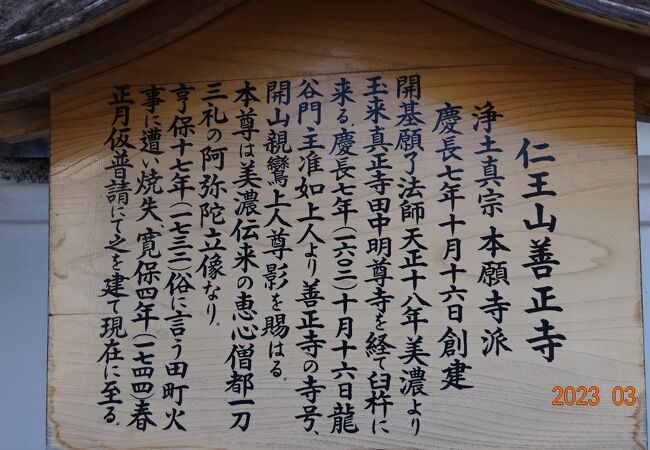 仁王山善正寺
浄土真宗 本願寺派
慶長七年十月十六日創建
開基願了法師天正十八年美濃より
玉来真正寺田中明尊寺を経て臼杵に
来る。慶長七年(一六〇二)十月十六日龍
谷門主准如上人より善正寺の寺号、
開山親鸞上人尊影を賜はる。
本尊は美濃伝来の恵心僧都一刀
三礼の阿弥陀立像なり。
享保十七年(一七三二)俗に言う田町火
事に遭い焼失、寛保四年(一七四四)春
正月仮普請にて之を建て現在に至る。
2023 03